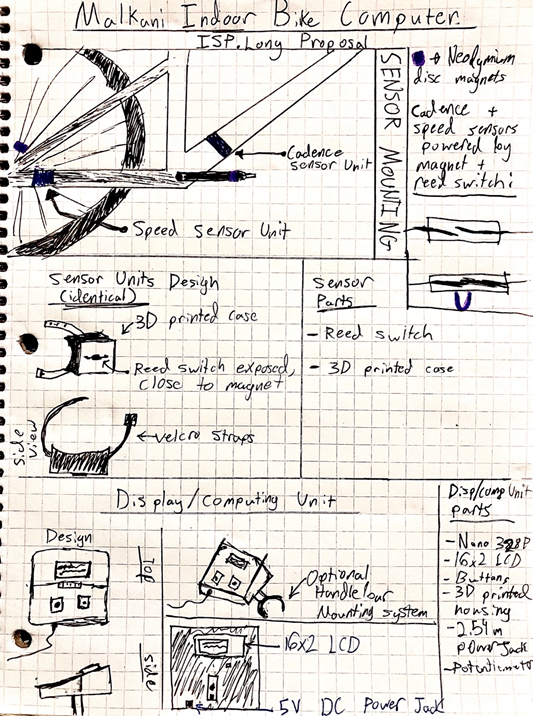 Malkani Indoor Bike Computer
ISP. Long Proposal
Cadence
sensor Unit
Speed Sensor Unit
SENSOR MOUNING
→ Neodymium
disc magnets
Cadence +
speed sensors
powered by
magnet +
reed switch:
Sensor Units Design
(identical)
3D printed case
Reed switch exposed,
close to magnet
Side
View
velcro straps
Sensor
Parts
- Reed switch
- 3D printed case
Display/Computing Unit
Design
Top
side
Optional
Handlebar
Mounting system
16x2 LCD
5V DC Power Jack
Disp/comp Unit
parts
- Nano 328P
- 16x2 LCD
- Buttons
- 3D printed
housing
- 2.54m
power Jack